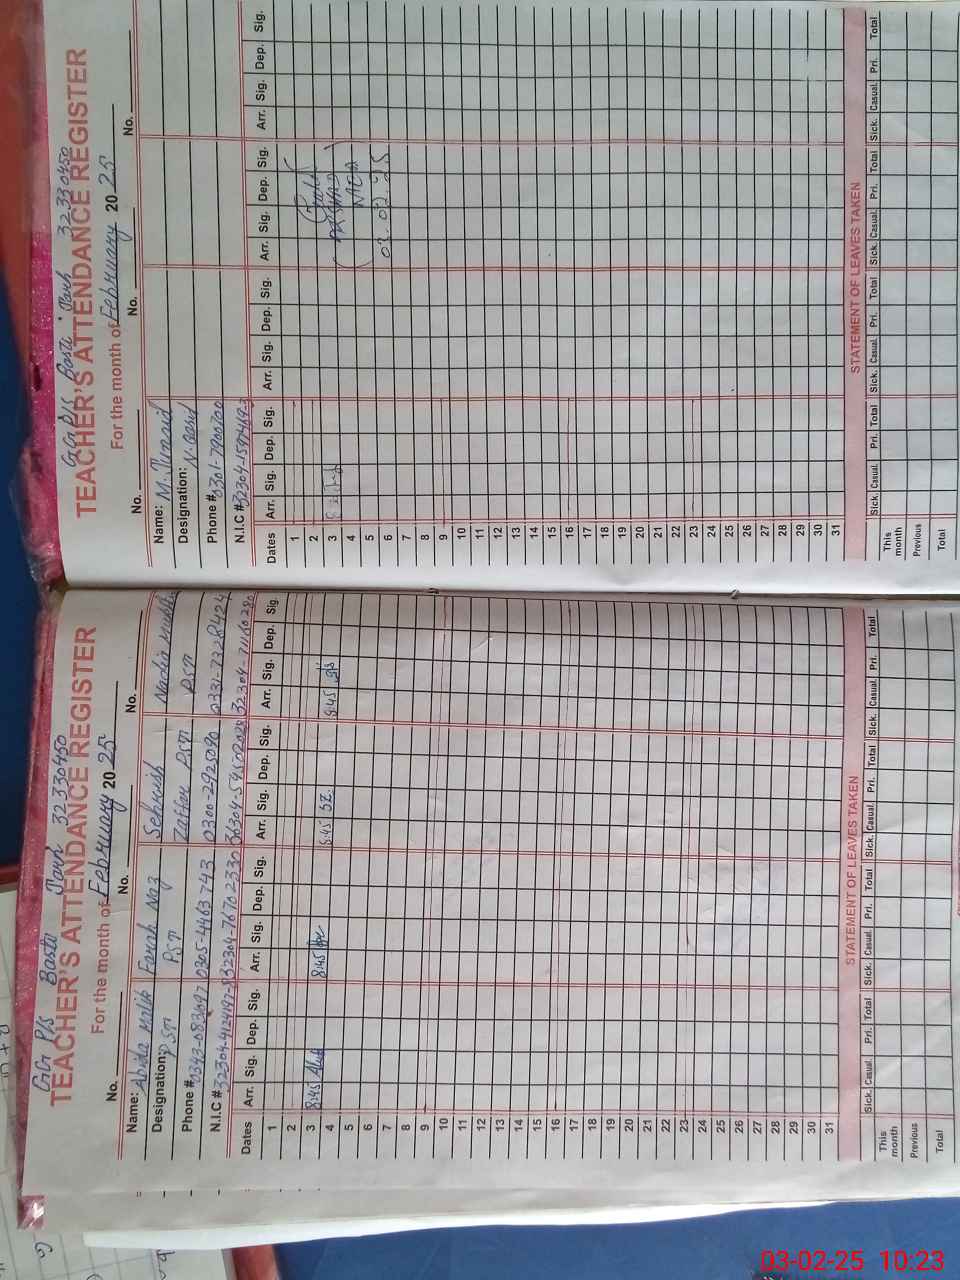 GG P/S Basti Janh 32330450
TEACHER'S ATTENDANCE REGISTER
For the month of February 20 25
No. No. No.
Name: Abida Malik Farah Naz Sehrish Nadia
Designation: PST PST Zaffar PST PST
Phone # 0305-4463743 0300-2925090 0331-7328424
N.I.C #
Dates Arr. Sig. Dep. Sig. Arr. Sig. Dep. Sig. Arr. Sig. Dep. Sig. Arr. Sig. Dep. Sig.
1
2
3 8:45 8:45 8:45 SZ 8:45
4
5
6
7
8
9
10
11
12
13
14
15
16
17
18
19
20
21
22
23
24
25
26
27
28
29
30
31
STATEMENT OF LEAVES TAKEN
Sick. Casual. Pri. Total Sick. Casual. Pri. Total Sick. Casual. Pri. Total Sick. Casual. Pri. Total
This month
Previous
Total
GG P/S Basti Janh 32330450
TEACHER'S ATTENDANCE REGISTER
For the month of February 20 25
No. No. No.
Name: M. Junaid
Designation: N. Qasid
Phone # 0301-7900700
N.I.C #
Dates Arr. Sig. Dep. Sig. Arr. Sig. Dep. Sig. Arr. Sig. Dep. Sig. Arr. Sig. Dep. Sig.
1
2
3
4
5
6 03.02.25
7
8
9
10
11
12
13
14
15
16
17
18
19
20
21
22
23
24
25
26
27
28
29
30
31
STATEMENT OF LEAVES TAKEN
Sick. Casual. Pri. Total Sick. Casual. Pri. Total Sick. Casual. Pri. Total Sick. Casual. Pri. Total
This month
Previous
Total
03-02-25 10:23